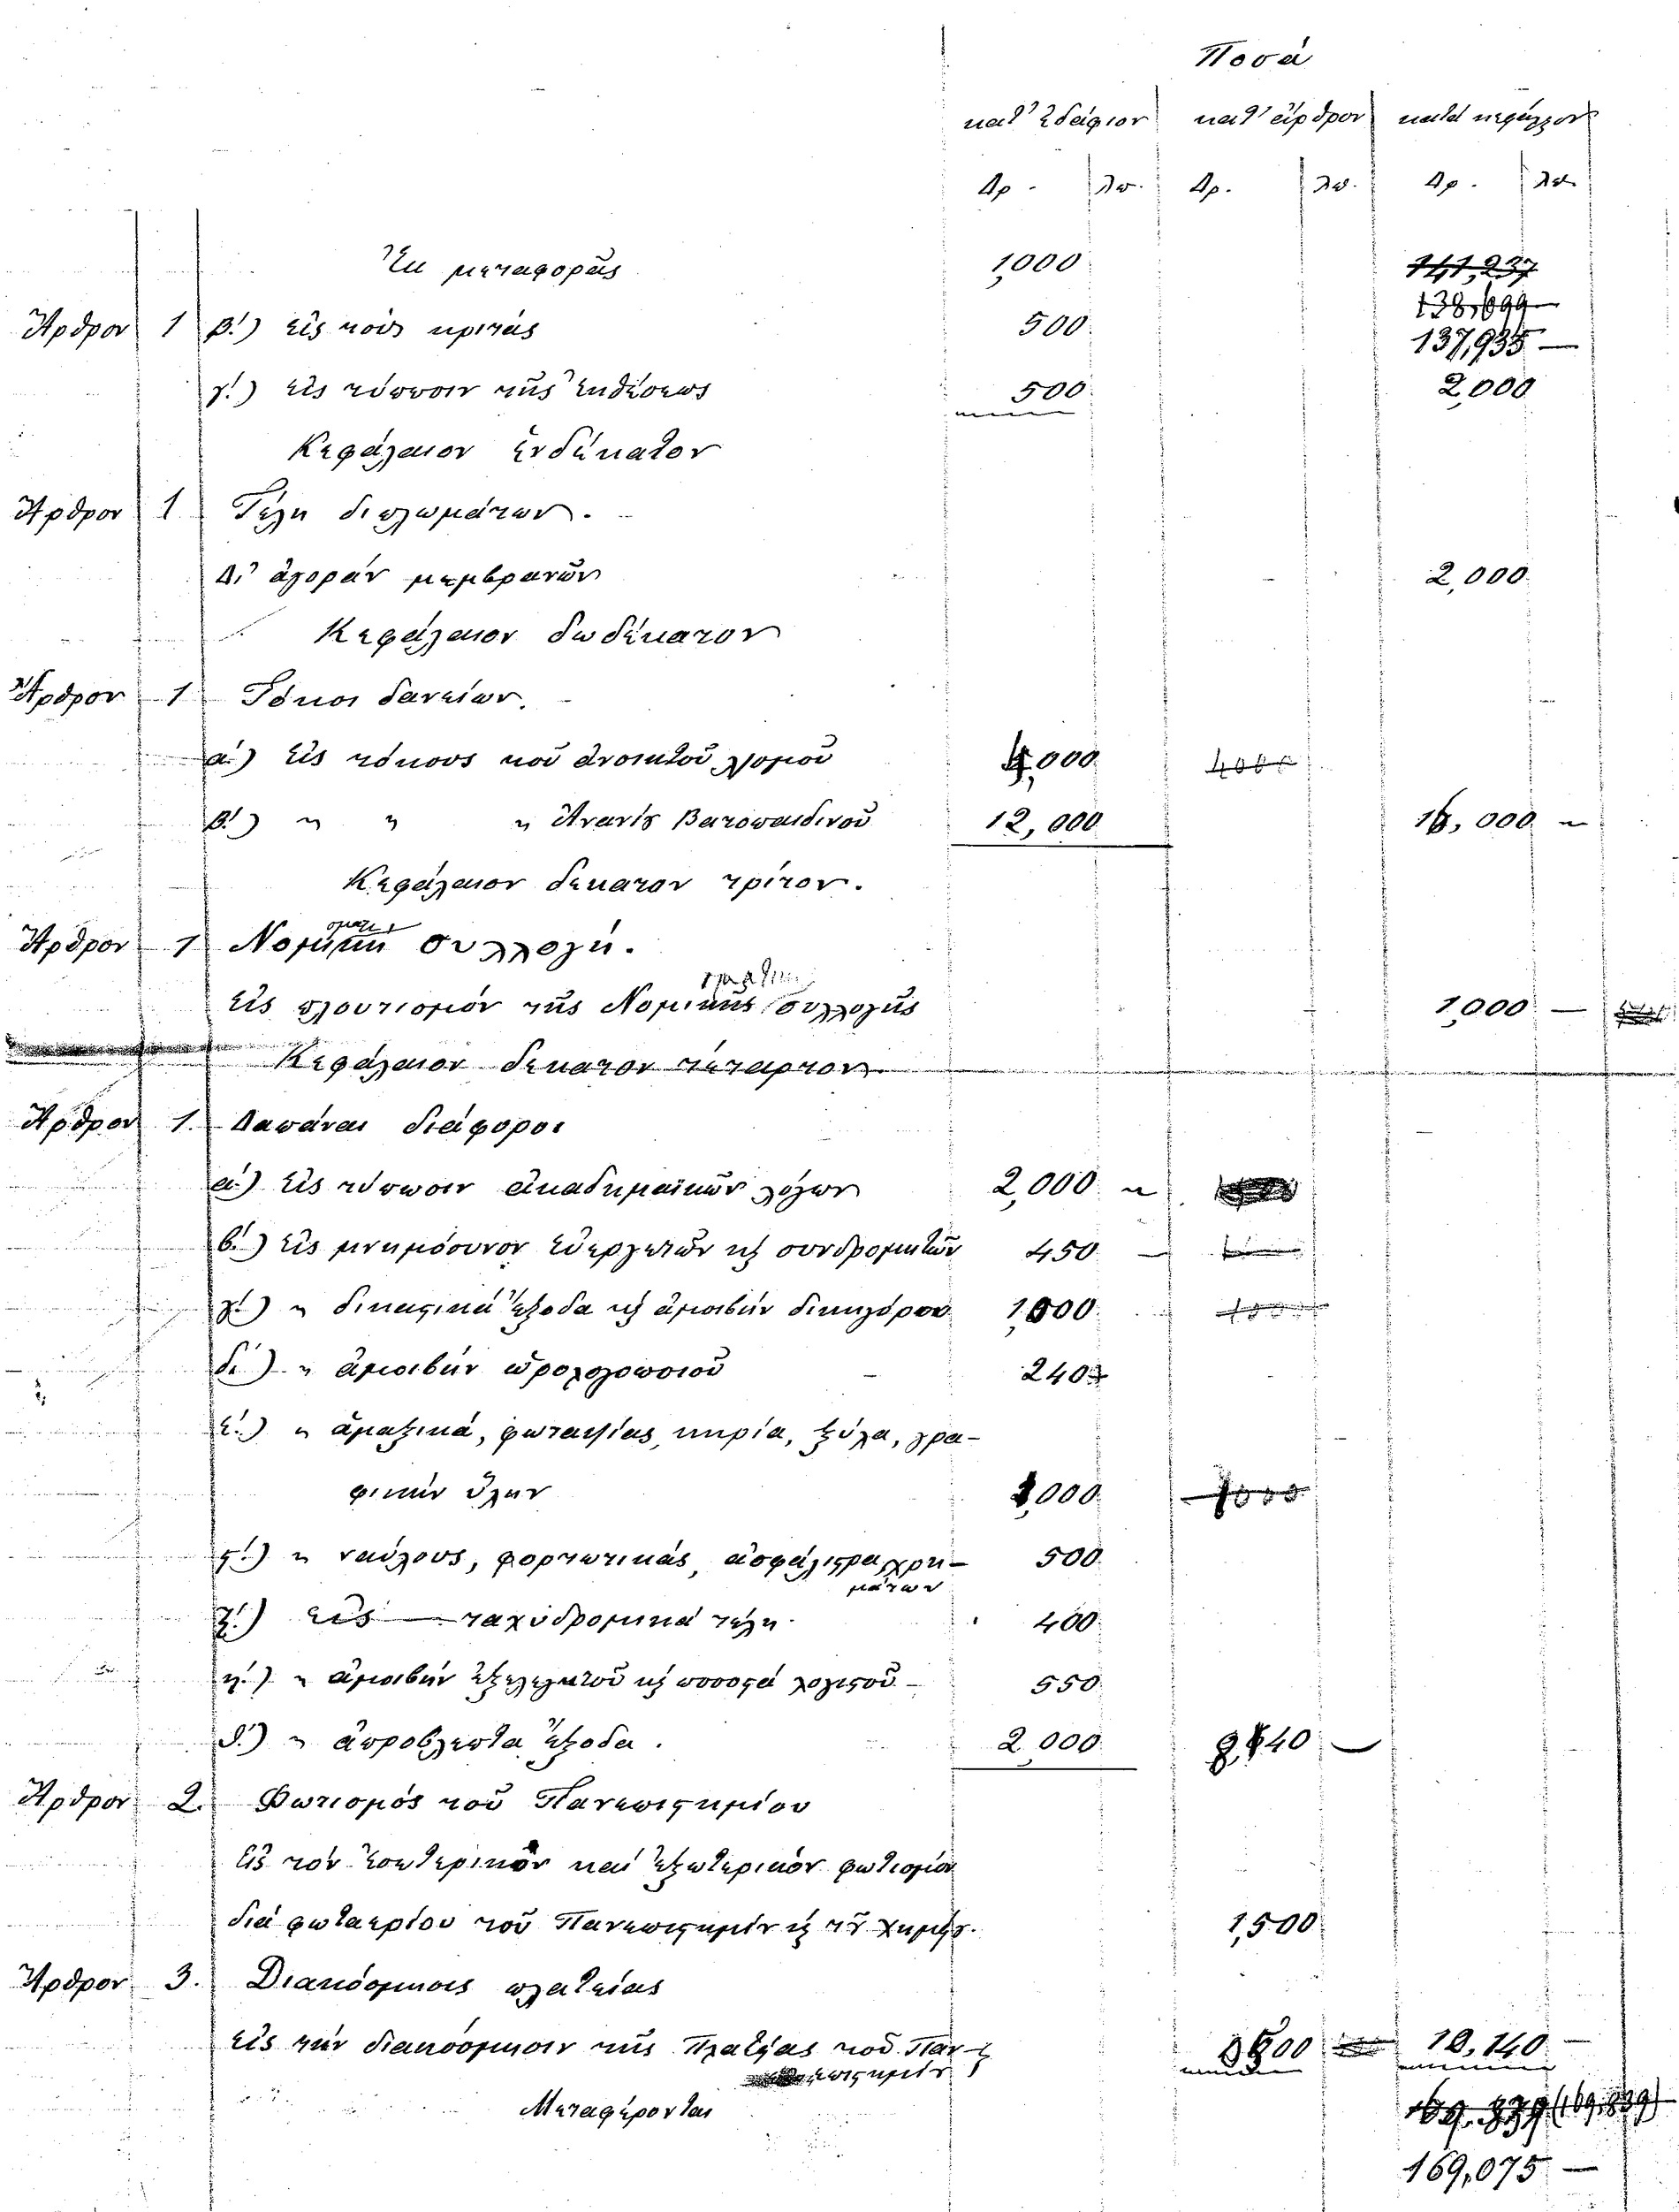 Ποσά
κατ' ἐδάφιον κατ' ἄρθρον κατὰ κεφάλαιον
Δρ. λπ. Δρ. λπ. Δρ. λπ.
Ἐκ μεταφορᾶς 1,000 141,237
138,699
Ἄρθρον 1 β.) εἰς τοὺς κριτάς 500 137,935 —
γ.) εἰς τύπωσιν τῆς ἐκθέσεως 500 2,000
Κεφάλαιον ἑνδέκατον
Ἄρθρον 1 Τέλη διπλωμάτων.
Δι' ἀγορὰν μεμβρανῶν 2,000
Κεφάλαιον δωδέκατον
Ἄρθρον 1 Τόκοι δανείων.
α.) εἰς τόκους τοῦ ἀνοικτοῦ λ)σμοῦ 4,000 4000
β.) " " " Ἀνανίᾳ Βατοπαιδινοῦ 12,000 16,000 "
Κεφάλαιον δέκατον τρίτον.
Ἄρθρον 1 Νομικὴ συλλογή.
εἰς πλουτισμὸν τῆς Νομικῆς συλλογῆς 1,000 —
Κεφάλαιον δέκατον τέταρτον
Ἄρθρον 1. Δαπάναι διάφοροι
α.) εἰς τύπωσιν ἀκαδημαϊκῶν λόγων 2,000 "
β.) εἰς μνημόσυνον εὐεργετῶν κ) συνδρομητῶν 450 —
γ.) " δικαστικὰ ἔξοδα κ) ἀμοιβὴν δικηγόρου 1,000
δ.) " ἀμοιβὴν ὡρολογοποιοῦ 240
ε.) " ἁμαξικά, φωταψίας, κηρία, ξύλα, γρα-
φικὴν ὕλην
ϛ.) " ναύλους, φορτωτικάς, ἀσφάλιστρα χρη- 500
μάτων
ζ.) εἰς — ταχυδρομικὰ τέλη 400
η.) " ἀμοιβὴν ἐξελεγκτοῦ κ) ποσοστὰ λογιστοῦ 550
θ.) " ἀπρόβλεπτα ἔξοδα. 2,000
Ἄρθρον 2. Φωτισμὸς τοῦ Πανεπιστημίου
Εἰς τὸν ἐσωτερικὸν καὶ ἐξωτερικὸν φωτισμὸν
διὰ φωταερίου τοῦ Πανεπιστημίου κ) τοῦ χημείου. 1,500
Ἄρθρον 3. Διακόσμησις πλατείας
εἰς τὴν διακόσμησιν τῆς Πλατείας τοῦ Παν- 12,140 —
επιστημίου
Μεταφέρονται
169,075 —